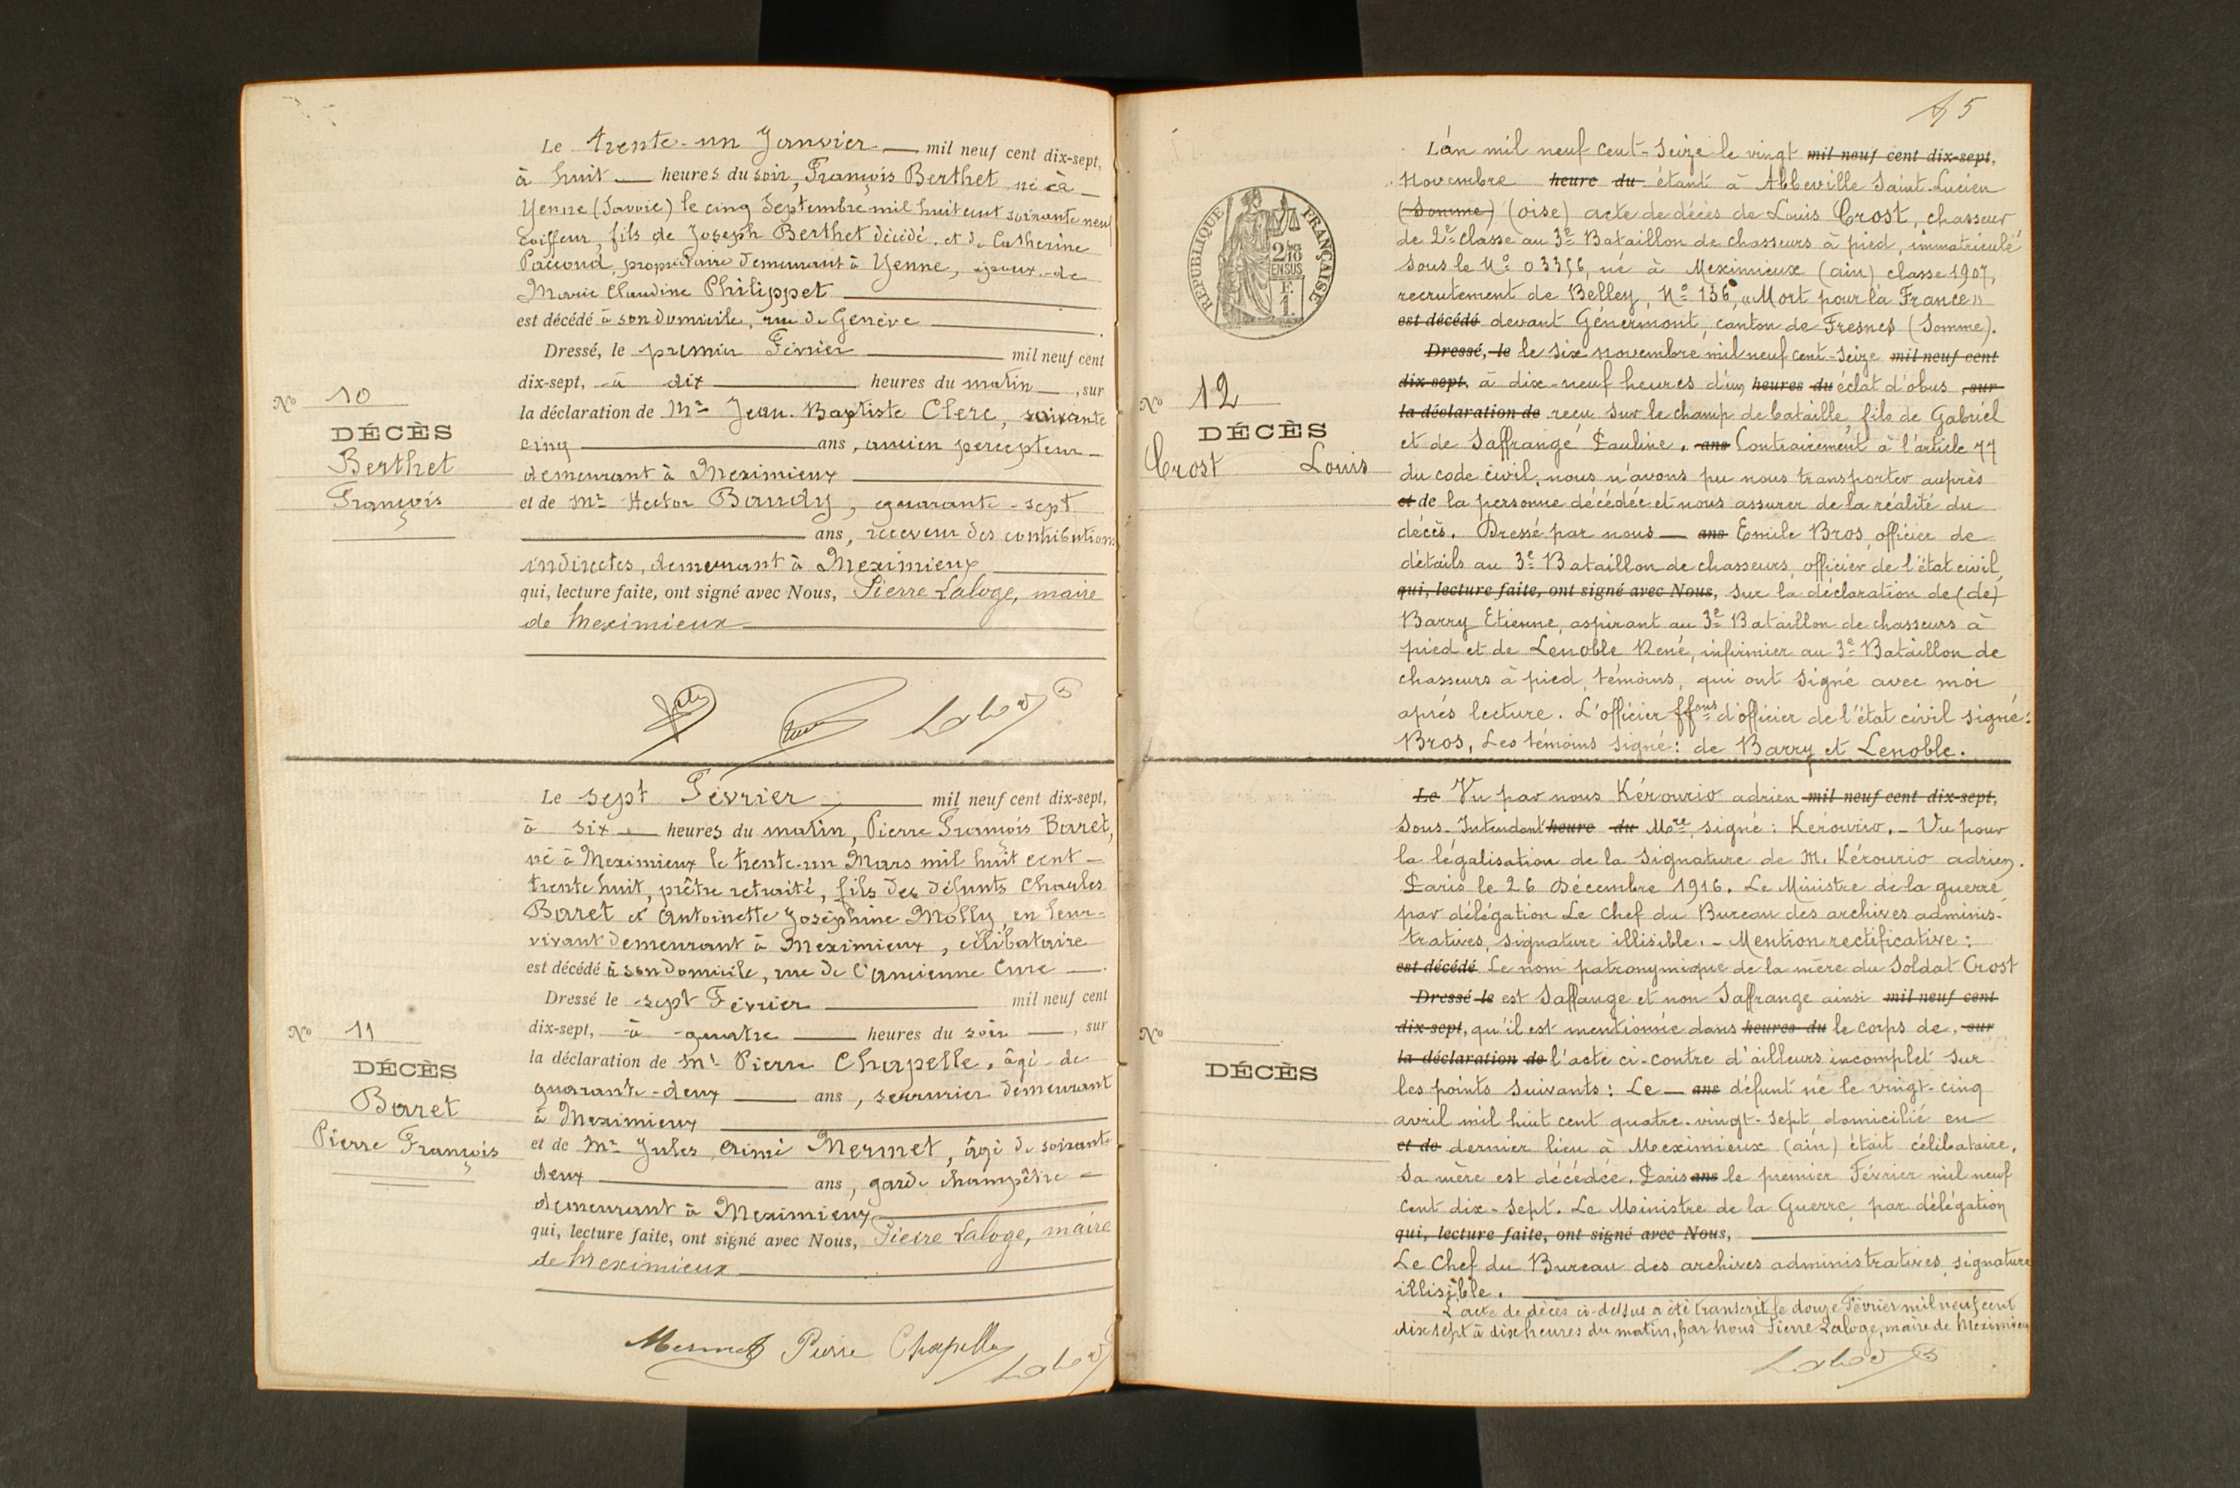 Le trente-un Janvier mil neuf cent dix-sept,
à huit heures du soir, François Berthet né à
Yenne (Savoie) le cinq Septembre mil huit cent soixante neuf
coiffeur, fils de Joseph Berthet décédé et de Catherine
Paccoud, propriétaire demeurant à Yenne, époux de
Marie Claudine Philippet
est décédé à son domicile, rue de Genève
Dressé, le premier Février mil neuf cent
dix-sept, à dix heures du matin, sur
No 10
la déclaration de Mr Jean-Baptiste Clerc, soixante
DÉCÈS
cinq ans, ancien percepteur
Berthet
demeurant à Meximieux
François
et de Mr Hector Baudy, quarante-sept
ans, receveur des contributions
indirectes, demeurant à Meximieux
qui, lecture faite, ont signé avec Nous, Pierre Laloge, maire
de Meximieux
Le sept Février mil neuf cent dix-sept,
à six heures du matin, Pierre François Barret,
né à Meximieux le trente-un Mars mil huit cent
trente huit, prêtre retraité, fils des défunts Charles
Barret et Antoinette Joséphine Molly, en leur
vivant demeurant à Meximieux, célibataire
est décédé à son domicile, rue de l'ancienne Cure
Dressé le sept Février mil neuf cent
No 11
dix-sept, à quatre heures du soir, sur
DÉCÈS
la déclaration de Mr Pierre Chapelle, âgé de
Barret
quarante-deux ans, serrurier demeurant
à Meximieux
Pierre François
et de Mr Jules Aimé Mermet, âgé de soixante
deux ans, garde champêtre
demeurant à Meximieux
qui, lecture faite, ont signé avec Nous, Pierre Laloge, maire
de Meximieux
Mermet Pierre Chapelle
REPUBLIQUE FRANÇAISE
2/10 EN SUS
1 F.
L'an mil neuf cent-seize le vingt mil neuf cent dix-sept,
Novembre heure du étant à Abbeville Saint-Lucien
(Somme) (oise) acte de décès de Louis Crost, chasseur
de 2e classe au 3e Bataillon de chasseurs à pied, immatriculé
sous le No 03356, né à Meximieux (ain) classe 1907,
recrutement de Belley, No 136, "Mort pour la France"
est décédé devant Génermont, canton de Fresnes (Somme).
Dressé, le le six novembre mil neuf cent-seize mil neuf cent
No 12
dix-sept, à dix-neuf heures d'un heures du éclat d'obus, sur
la déclaration de reçu sur le champ de bataille, fils de Gabriel
DÉCÈS
et de Saffrange Pauline. ans Contrairement à l'article 77
Crost Louis
du code civil, nous n'avons pu nous transporter auprès
et de la personne décédée et nous assurer de la réalité du
décès. Dressé par nous ans Emile Bros, officier de
détails au 3e Bataillon de chasseurs, officier de l'état civil,
qui, lecture faite, ont signé avec Nous, sur la déclaration de (de)
Barry Etienne, aspirant au 3e Bataillon de chasseurs à
pied et de Lenoble René, infirmier au 3e Bataillon de
chasseurs à pied, témoins, qui ont signé avec moi
après lecture. L'officier ffons d'officier de l'état civil signé:
Bros, Les témoins signé: de Barry et Lenoble.
Le Vu par nous Kérourio adrien mil neuf cent dix-sept,
Sous-Intendant heure du Mre, signé: Kérourio. - Vu pour
la légalisation de la signature de M. Kérourio adrien.
Paris le 26 Décembre 1916. Le Ministre de la guerre
par délégation Le Chef du Bureau des archives adminis-
tratives, signature illisible. - Mention rectificative:
est décédé Le nom patronymique de la mère du soldat Crost
Dressé le est Saffange et non Saffrange ainsi mil neuf cent
No
dix-sept, qu'il est mentionné dans heures du le corps de, sur
DÉCÈS
la déclaration de l'acte ci-contre d'ailleurs incomplet sur
les points suivants: Le ans défunt né le vingt-cinq
avril mil huit cent quatre-vingt-sept, domicilié en
et de dernier lieu à Meximieux (ain) était célibataire.
Sa mère est décédée. Paris ans le premier Février mil neuf
cent dix-sept. Le Ministre de la Guerre, par délégation
qui, lecture faite, ont signé avec Nous,
Le Chef du Bureau des archives administratives, signature
illisible.
L'acte de décès ci-dessus a été transcrit le douze Février mil neuf cent
dix sept à dix heures du matin, par nous Pierre Laloge, maire de Meximieux